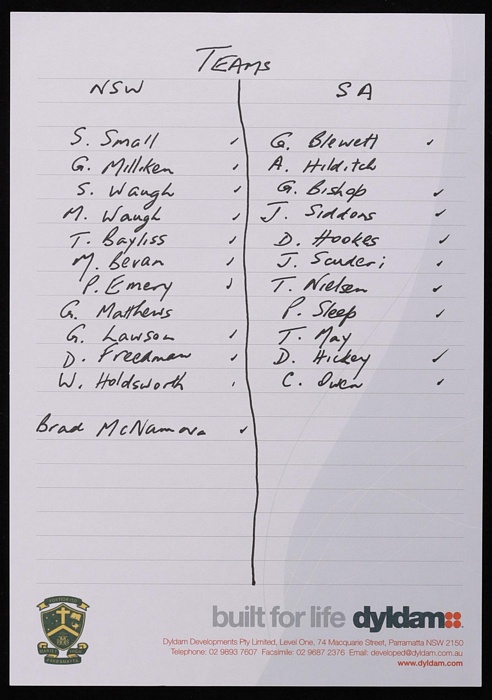 TEAMS
NSW SA
S. Small ✓ G. Blewett ✓
G. Milliken ✓ A. Hilditch
S. Waugh ✓ G. Bishop ✓
M. Waugh ✓ J. Siddons ✓
T. Bayliss ✓ D. Hookes ✓
M. Bevan ✓ J. Scuderi ✓
P. Emery ✓ T. Nielsen ✓
G. Matthews P. Sleep ✓
G. Lawson ✓ T. May
D. Freedman ✓ D. Hickey ✓
W. Holdsworth ✓ C. Owen ✓
Brad McNamara ✓
built for life dyldam
Dyldam Developments Pty Limited, Level One, 74 Macquarie Street, Parramatta NSW 2150
Telephone: 02 9893 7607 Facsimile: 02 9687 2376 Email: developed@dyldam.com.au
www.dyldam.com
PARRAMATTA